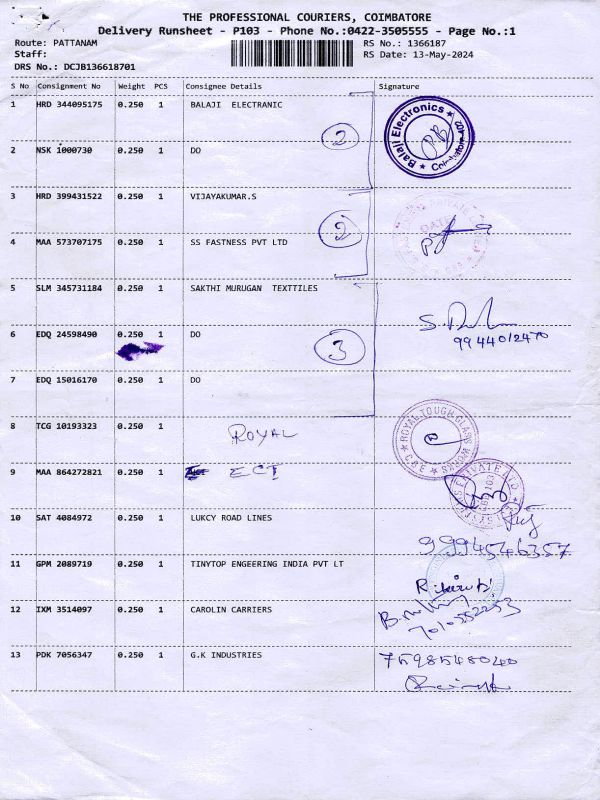 THE PROFESSIONAL COURIERS, COIMBATORE
Delivery Runsheet - P103 - Phone No.:0422-3505555 - Page No.:1
Route: PATTANAM
RS No.: 1366187
Staff:
RS Date: 13-May-2024
DRS No.: DCJB136618701
S No Consignment No Weight PCS Consignee Details Signature
1 HRD 344095175 0.250 1 BALAJI ELECTRANIC
Balaji Electronics
2
2 NSK 1000730 0.250 1 DO
3 HRD 399431522 0.250 1 VIJAYAKUMAR.S
2
4 MAA 573707175 0.250 1 SS FASTNESS PVT LTD
5 SLM 345731184 0.250 1 SAKTHI MURUGAN TEXTTILES
6 EDQ 24598490 0.250 1 DO
9944012470
3
7 EDQ 15016170 0.250 1 DO
8 TCG 10193323 0.250 1 ROYAL
ROYAL TOUGH GLASS WORKS CBE
9 MAA 864272821 0.250 1 ECI
10 SAT 4084972 0.250 1 LUKCY ROAD LINES
9994546357
11 GPM 2089719 0.250 1 TINYTOP ENGEERING INDIA PVT LT
12 IXM 3514097 0.250 1 CAROLIN CARRIERS
7010552253
13 PDK 7056347 0.250 1 G.K INDUSTRIES
7598548040